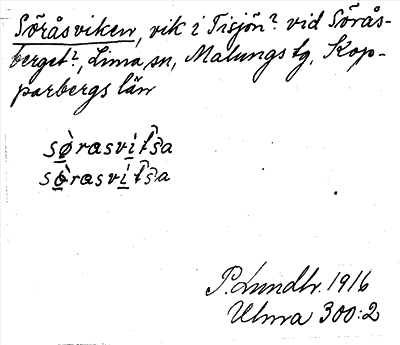 Söråsviken, vik i Tisjön? vid Sörås-
berget?, Lima sn, Malungs tg, Kop-
parbergs län
sø̱̀rasvi̱tʃ̂a
sø̱̀rasvi̱tʃ̂a
P. Lundbr. 1916
Ulma 300:2